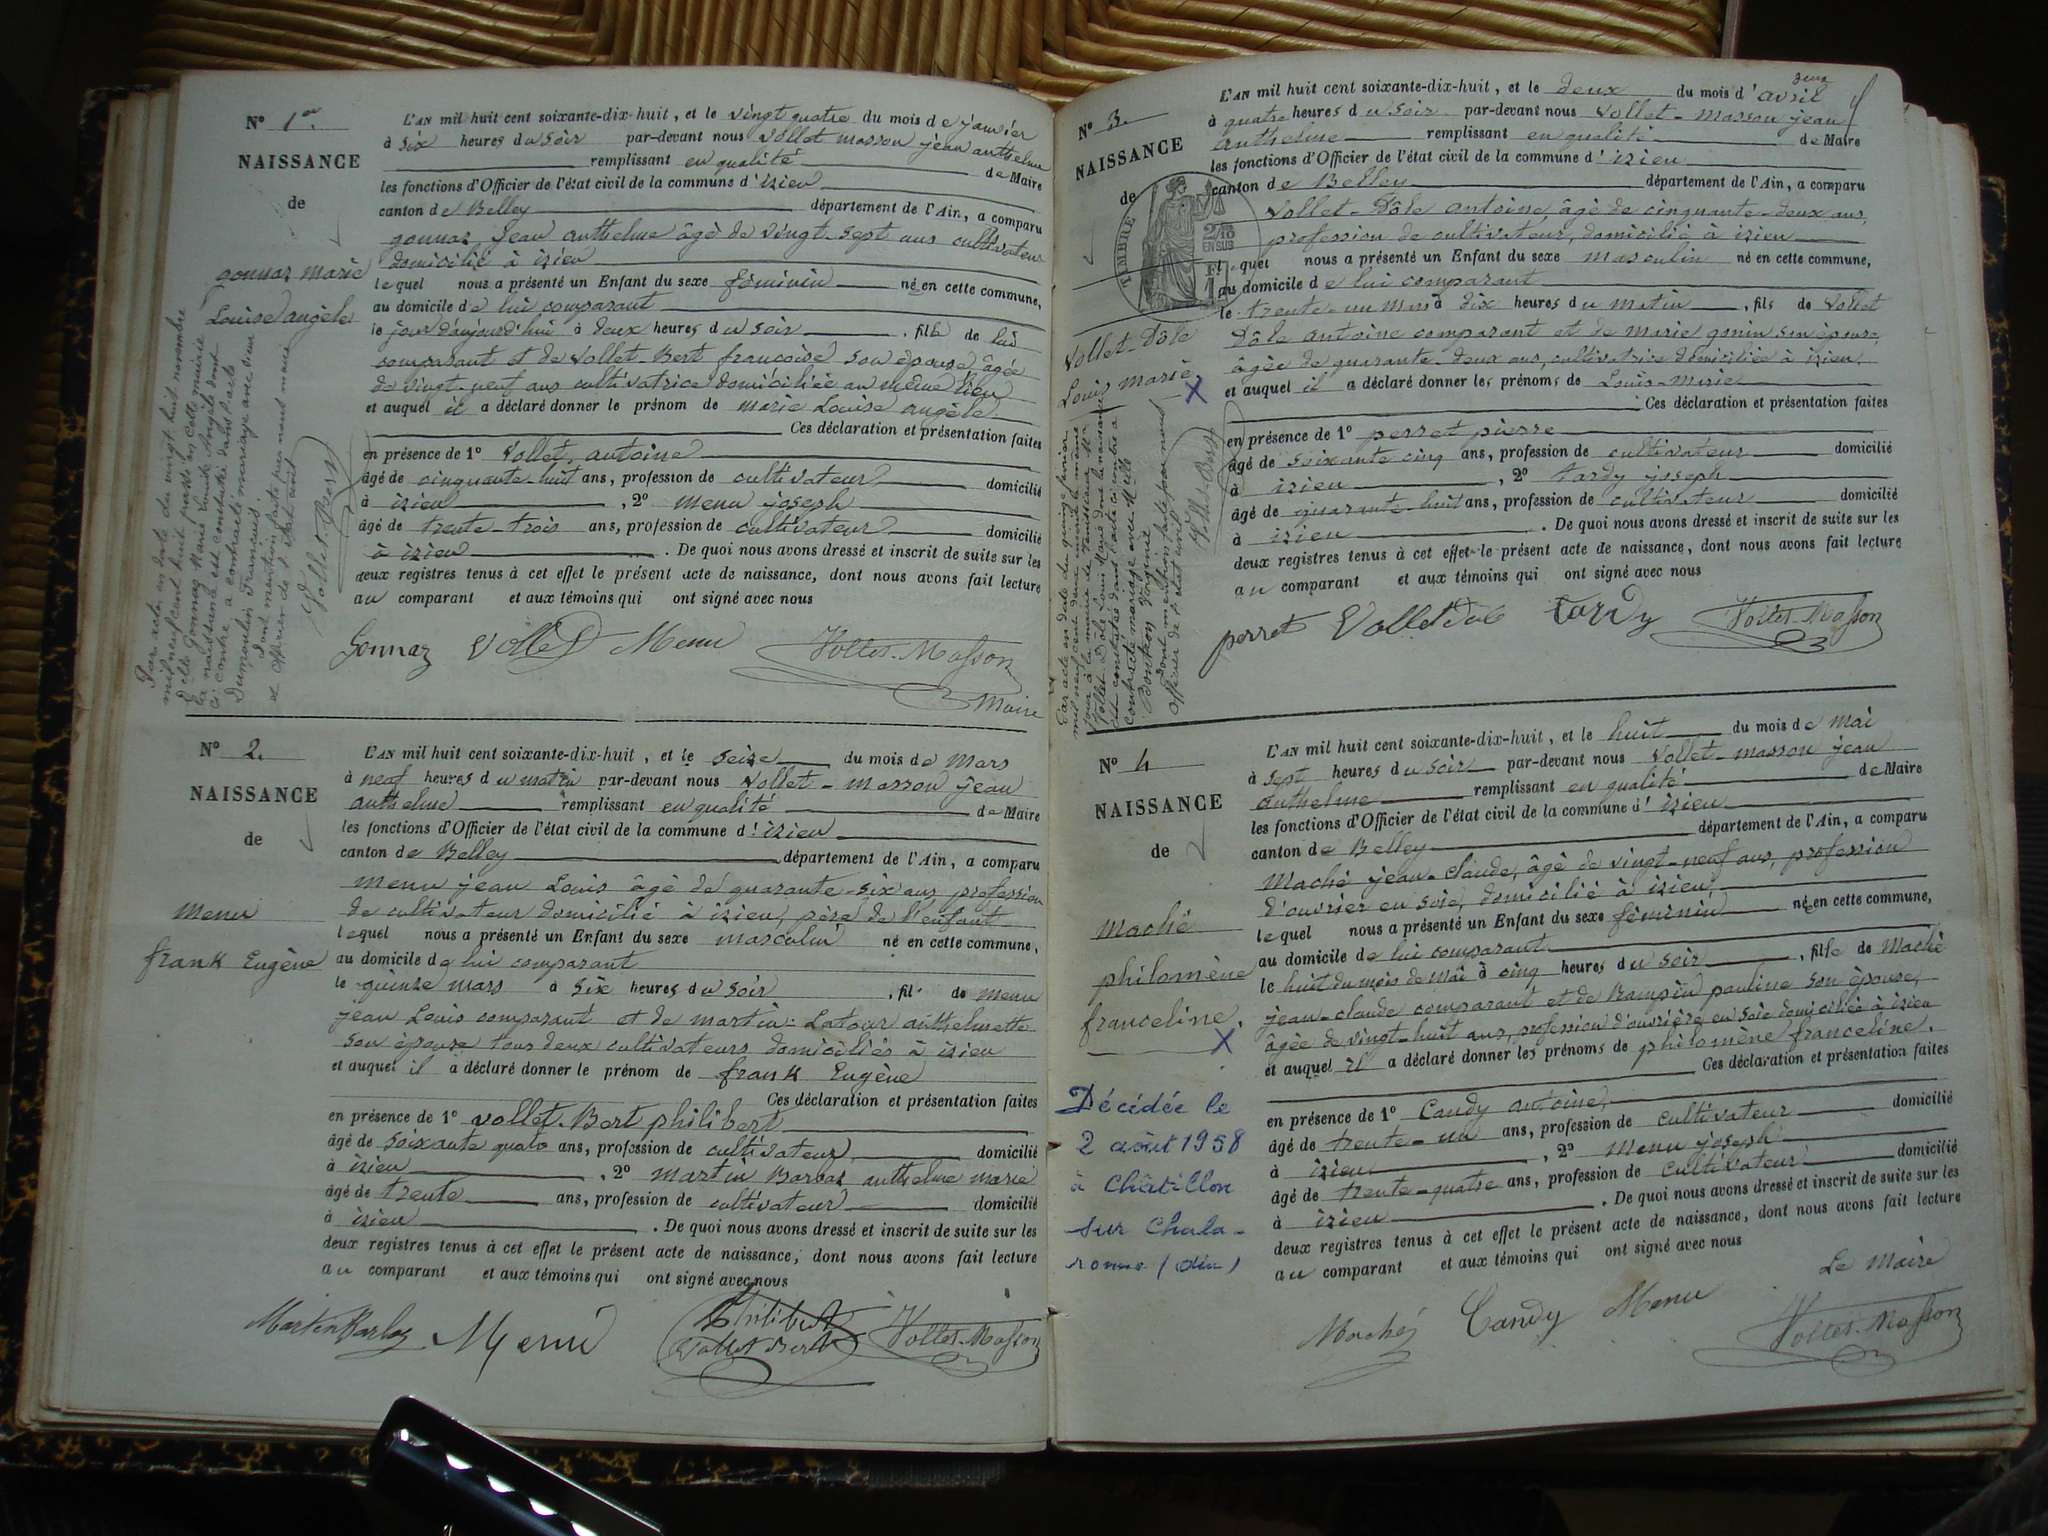 N° 1er.
NAISSANCE
de
gonnaz marie
Louise angèle
L'AN mil huit cent soixante-dix-huit, et le vingt quatre du mois de janvier
à six heures du soir par-devant nous vollet masson jean anthelme
remplissant en qualité de Maire
les fonctions d'Officier de l'état civil de la commune d'izieu
canton de Belley département de l'Ain, a comparu
gonnaz jean anthelme âgé de vingt-sept ans cultivateur
domicilié à izieu
lequel nous a présenté un Enfant du sexe féminin née en cette commune,
au domicile de lui comparant
le jour d'aujourd'hui à deux heures du soir, fille de lui
comparant et de vollet-Bert françoise son épouse âgée
de vingt-neuf ans cultivatrice domiciliée au même lieu
et auquel il a déclaré donner le prénom de marie Louise angèle.
Ces déclaration et présentation faites
en présence de 1° vollet, antoine
âgé de cinquante-huit ans, profession de cultivateur domicilié
à izieu, 2° menu joseph
âgé de trente-trois ans, profession de cultivateur domicilié
à izieu. De quoi nous avons dressé et inscrit de suite sur les
deux registres tenus à cet effet le présent acte de naissance, dont nous avons fait lecture
au comparant et aux témoins qui ont signé avec nous
Gonnaz Vollet Menu Vollet-Masson
Maire
Par acte en date du vingt huit novembre
mil neuf cent huit, passé en cette mairie
Delle Gonnaz Marie Louise Angèle dont
la naissance est constatée dans l'acte
ci-contre a contracté mariage avec sieur
Dumoulin François.
Dont mention faite par nous maire
et officier de l'état civil
Vollet-Bert
N° 2.
NAISSANCE
de
Menu
frank Eugène
L'AN mil huit cent soixante-dix-huit, et le seize du mois de Mars
à neuf heures du matin par-devant nous vollet-masson jean
anthelme remplissant en qualité de Maire
les fonctions d'Officier de l'état civil de la commune d'izieu
canton de Belley département de l'Ain, a comparu
menu jean Louis âgé de quarante-six ans profession
de cultivateur domicilié à izieu, père de l'enfant
lequel nous a présenté un Enfant du sexe masculin né en cette commune,
au domicile de lui comparant
le quinze mars à six heures du soir, fils de menu
jean Louis comparant et de martin-Latour anthelmette
son épouse tous deux cultivateurs domiciliés à izieu
et auquel il a déclaré donner le prénom de frank Eugène
Ces déclaration et présentation faites
en présence de 1° vollet-Bert philibert
âgé de soixante quatre ans, profession de cultivateur domicilié
à izieu, 2° martin Barbaz anthelme marie
âgé de trente ans, profession de cultivateur domicilié
à izieu. De quoi nous avons dressé et inscrit de suite sur les
deux registres tenus à cet effet le présent acte de naissance, dont nous avons fait lecture
au comparant et aux témoins qui ont signé avec nous
Martin Barbaz Menu Philibert Vollet Bert Vollet-Masson
N° 3.
NAISSANCE
de
TIMBRE
2/10
EN SUS
Vollet-Dôle
Louis marie
X
L'AN mil huit cent soixante-dix-huit, et le deux du mois d'avril
à quatre heures du soir par-devant nous vollet-masson jean
anthelme remplissant en qualité de Maire
les fonctions d'Officier de l'état civil de la commune d'izieu
canton de Belley département de l'Ain, a comparu
vollet-Dôle antoine, âgé de cinquante-deux ans,
profession de cultivateur, domicilié à izieu
lequel nous a présenté un Enfant du sexe masculin né en cette commune,
au domicile de lui comparant
le trente-un mars à six heures du matin, fils de vollet
Dôle antoine comparant et de marie gonin son épouse,
âgée de quarante-deux ans, cultivatrice domiciliée à izieu.
et auquel il a déclaré donner les prénoms de Louis-marie
Ces déclaration et présentation faites
en présence de 1° perret pierre
âgé de soixante cinq ans, profession de cultivateur domicilié
à izieu, 2° tardy joseph
âgé de quarante-huit ans, profession de cultivateur domicilié
à izieu. De quoi nous avons dressé et inscrit de suite sur les
deux registres tenus à cet effet le présent acte de naissance, dont nous avons fait lecture
au comparant et aux témoins qui ont signé avec nous
perret Vollet Dole tardy Vollet-Masson
Par acte en date du quinze février
mil neuf cent deux, inscrit le même
jour à la mairie de
Vollet-Dôle Louis Marie dont la naissance
est constatée dans l'acte ci-contre a
contracté mariage avec Mlle
Virginie
Dont mention faite par nous
officier de l'état civil
Vollet-Bert
N° 4
NAISSANCE
de
maché
philomène
franceline.
X
Décédée le
2 août 1958
à Châtillon
sur Chala-
ronne (Ain)
L'AN mil huit cent soixante-dix-huit, et le huit du mois de mai
à sept heures du soir par-devant nous vollet-masson jean
anthelme remplissant en qualité de Maire
les fonctions d'Officier de l'état civil de la commune d'izieu
canton de Belley département de l'Ain, a comparu
Maché jean-Claude, âgé de vingt-neuf ans, profession
d'ouvrier en soie, domicilié à izieu,
lequel nous a présenté un Enfant du sexe féminin née en cette commune,
au domicile de lui comparant
le huit du mois de mai à cinq heures du soir, fille de Maché
jean-claude comparant et de Rampin pauline son épouse,
âgée de vingt-huit ans, profession d'ouvrière en soie domiciliée à izieu
et auquel il a déclaré donner les prénoms de philomène franceline.
Ces déclaration et présentation faites
en présence de 1° Candy antoine,
âgé de trente-un ans, profession de cultivateur domicilié
à izieu, 2° Menu joseph
âgé de trente-quatre ans, profession de cultivateur domicilié
à izieu. De quoi nous avons dressé et inscrit de suite sur les
deux registres tenus à cet effet le présent acte de naissance, dont nous avons fait lecture
au comparant et aux témoins qui ont signé avec nous
Le Maire
Maché Candy Menu Vollet-Masson